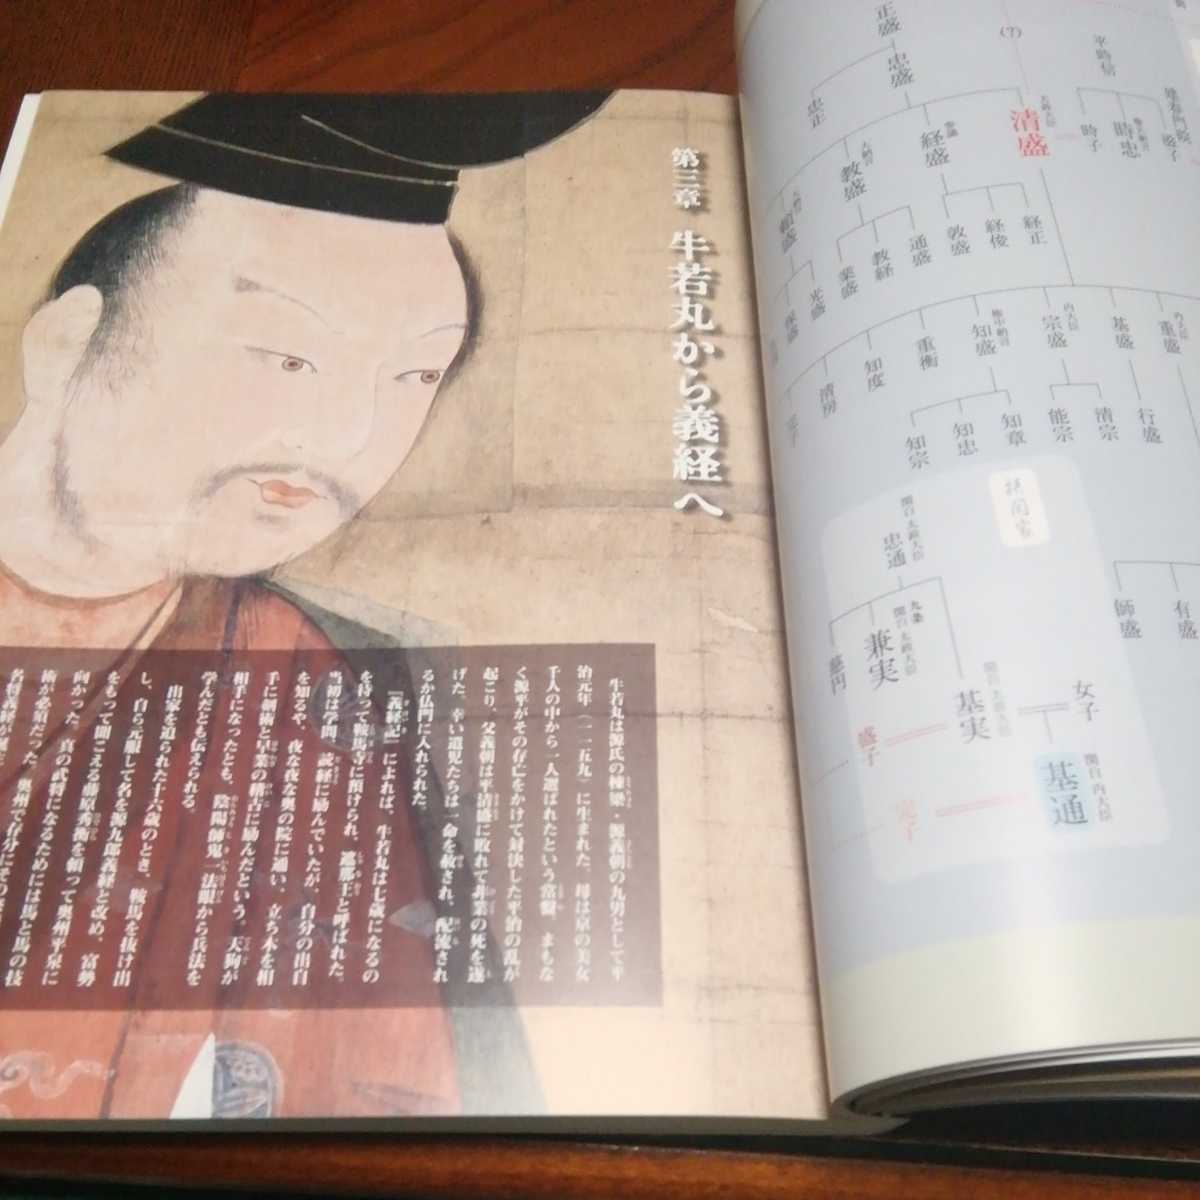 第三章 牛若丸から義経へ
牛若丸は源氏の棟梁・源義朝の九男として平
治元年(一一五九)に生まれた。母は京の美女
千人の中から一人選ばれたという常盤。まもな
く源平がその存亡をかけて対決した平治の乱が
起こり、父義朝は平清盛に敗れて非業の死を遂
げた。幸い遺児たちは一命を赦され、配流され
るか仏門に入れられた。
『義経記』によれば、牛若丸は七歳になるの
を待って鞍馬寺に預けられ、遮那王と呼ばれた。
当初は学問、読経に励んでいたが、自分の出自
を知るや、夜な夜な奥の院に通い、立ち木を相
手に剣術と早業の稽古に励んだという。天狗が
相手になったとも、陰陽師鬼一法眼から兵法を
学んだとも伝えられる。
出家を迫られた十六歳のとき、鞍馬を抜け出
し、自ら元服して名を源九郎義経と改め、富勢
をもって聞こえる藤原秀衡を頼って奥州平泉に
向かった。真の武将になるためには馬と馬の技
術が必須だった。奥州で存分にその
正盛
忠盛
忠正
(7)
平時信
建春門院
滋子
時忠
時子
太政大臣
清盛
参議
経盛
教盛
経正
経俊
敦盛
通盛
教経
業盛
光盛
内大臣
重盛
基盛
内大臣
宗盛
権中納言
知盛
重衡
知度
清房
行盛
清宗
能宗
知章
知忠
知宗
有盛
師盛
摂関家
関白 太政大臣
忠通
九条
関白 太政大臣
兼実
慈円
基実
女子
盛子
完子
関白 内大臣
基通